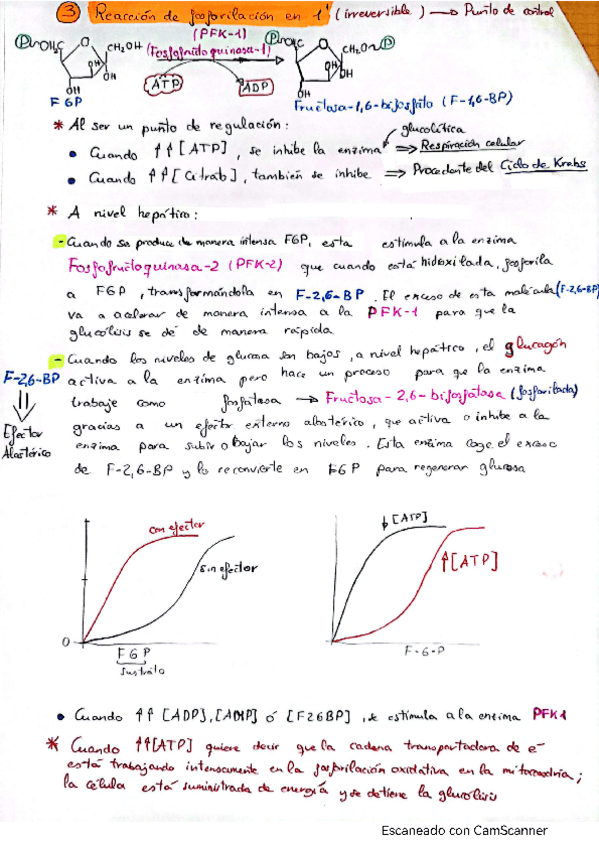 ③ Reacción de fosforilación en 1' (irreversible) → Punto de control
(PFK-1)
(Fosfofructoquinasa-1)
CH₂OH
OH
OH
F6P
ATP
ADP
CH₂O-Ⓟ
OH
OH
Fructosa-1,6-bifosfato (F-1,6-BP)
* Al ser un punto de regulación:
glucolítica
• Cuando ↑↑ [ATP], se inhibe la enzima ⇒ Respiración celular
• Cuando ↑↑ [citrato], también se inhibe ⇒ Procedente del Ciclo de Krebs
* A nivel hepático:
- Cuando se produce de manera intensa F6P, esta estimula a la enzima
Fosfofructoquinasa-2 (PFK-2) que cuando está hidoxilada, fosforila
a F6P, transformándola en F-2,6-BP. El exceso de esta molécula (F-2,6-BP)
va a acelerar de manera intensa a la PFK-1 para que la
glucólisis se dé de manera rápida
- Cuando los niveles de glucosa son bajos, a nivel hepático, el glucagón
activa a la enzima pero hace un proceso para que la enzima
trabaje como fosfatasa → Fructosa-2,6-bifosfatasa (fosforilada)
gracias a un efector externo alostérico, que activa o inhibe a la
enzima para subir o bajar los niveles. Esta enzima coge el exceso
de F-2,6-BP y lo reconvierte en F6P para regenerar glucosa
F-2,6-BP
⇓
Efector
Alostérico
con efector
sin efector
0
F6P
sustrato
↓[ATP]
↑[ATP]
F-6-P
• Cuando ↑↑ [ADP], [AMP] ó [F26BP], se estimula a la enzima PFK1
* Cuando ↑↑[ATP] quiere decir que la cadena transportadora de e⁻
está trabajando intensamente en la fosforilación oxidativa en la mitocondria;
la célula está suministrada de energía y se detiene la glucólisis
Escaneado con CamScanner